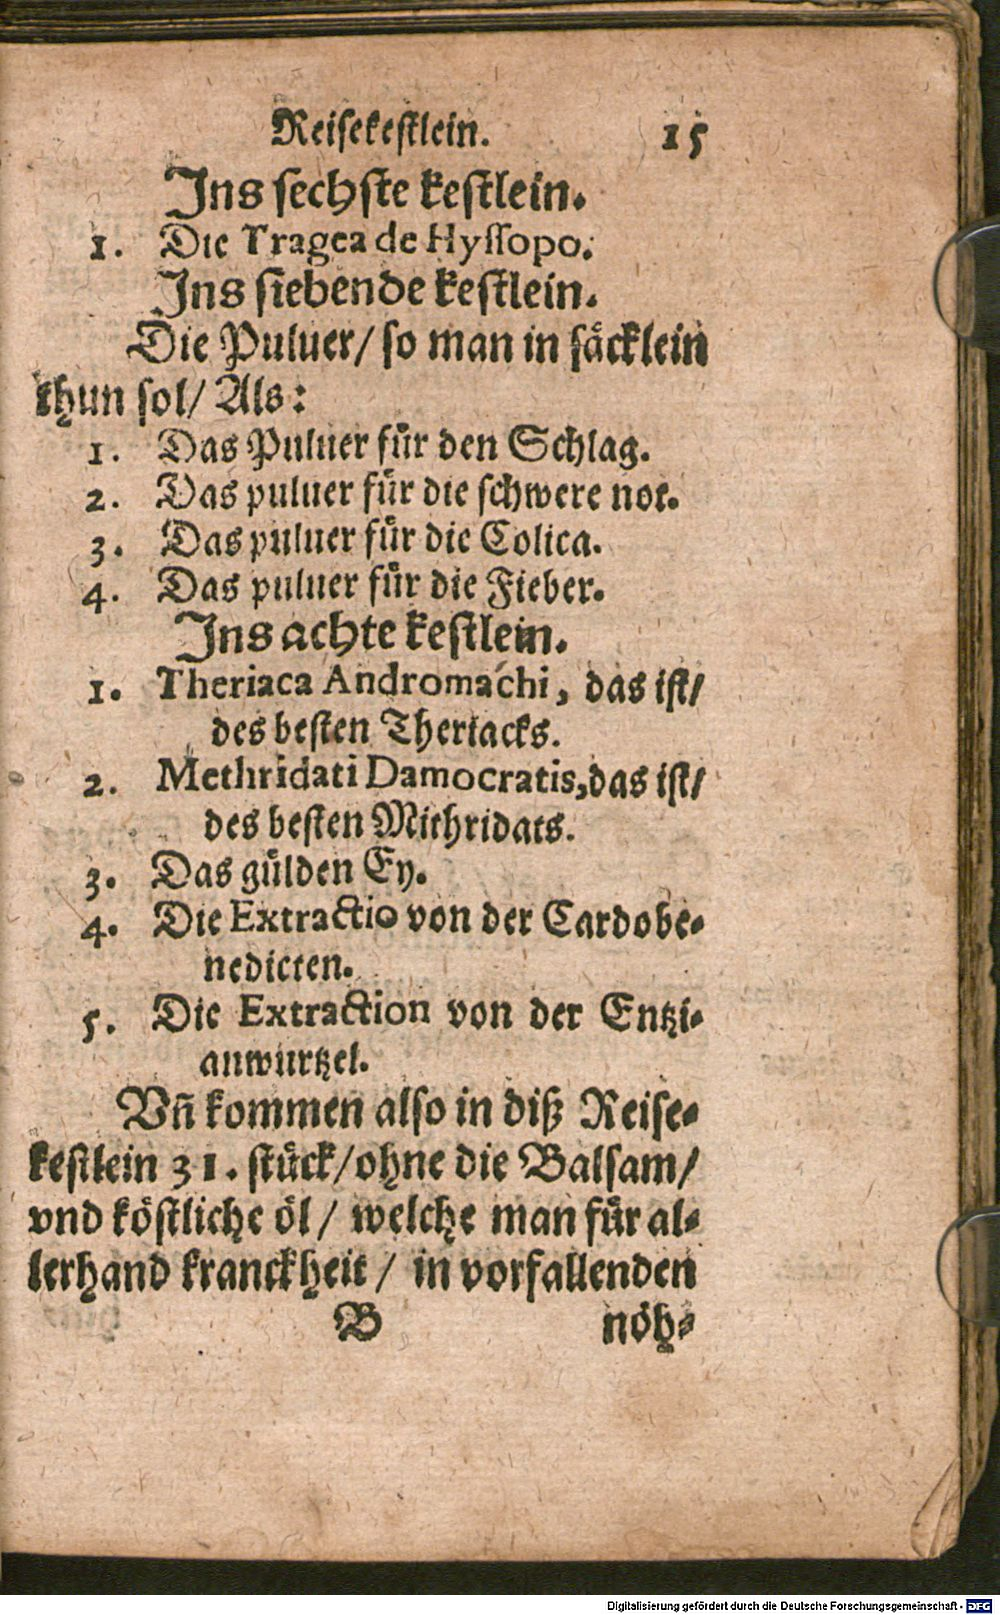 Reisekestlein. 15
Ins sechste kestlein.
1. Die Tragea de Hyssopo.
Ins siebende kestlein.
Die Puluer/ so man in säcklein
thun sol/ Als:
1. Das Puluer für den Schlag.
2. Das puluer für die schwere not.
3. Das puluer für die Colica.
4. Das puluer für die Fieber.
Ins achte kestlein.
1. Theriaca Andromachi, das ist/
des besten Theriacks.
2. Methridati Damocratis, das ist/
des besten Mithridats.
3. Das gülden Ey.
4. Die Extractio von der Cardobe-
nedicten.
5. Die Extraction von der Entzi-
anwurtzel.
Vñ kommen also in diß Reise-
kestlein 31. stück/ ohne die Balsam/
vnd köstliche öl/ welche man für al-
lerhand kranckheit/ in vorfallenden
B nöh-
Digitalisierung gefördert durch die Deutsche Forschungsgemeinschaft - DFG